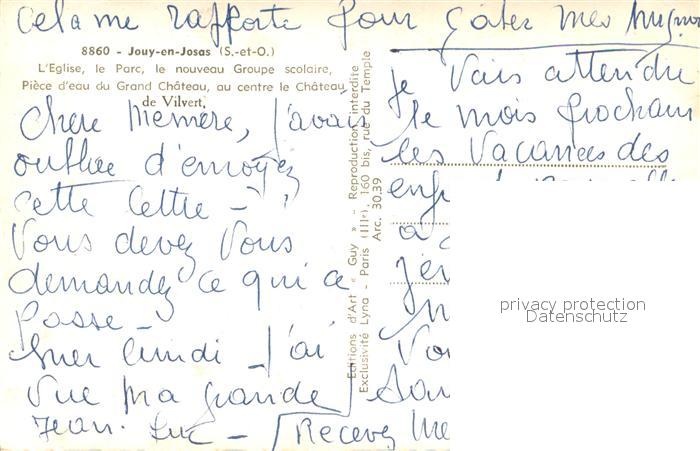 Cela me rapporte pour gâter mes
8860 - Jouy-en-Josas (S.-et-O.)
L'Eglise, le Parc, le nouveau Groupe scolaire,
Pièce d'eau du Grand Château, au centre le Château
de Vilvert,
Chère Mémère, j'avais
oublié d'envoyez
cette lettre -
Vous devez Vous
demandez ce qui ce
passe -
hier lundi - J'ai
Vue ma grande
Jean-Luc - Recevez
Editions d'Art « Guy » - Reproduction interdite
Exclusivité Lyna - Paris (IIIe), 160 bis, rue du Temple
Arc. 30.39
je Vais attendre
le mois prochain
les Vacances des
enf
a
Vou
privacy protection
Datenschutz